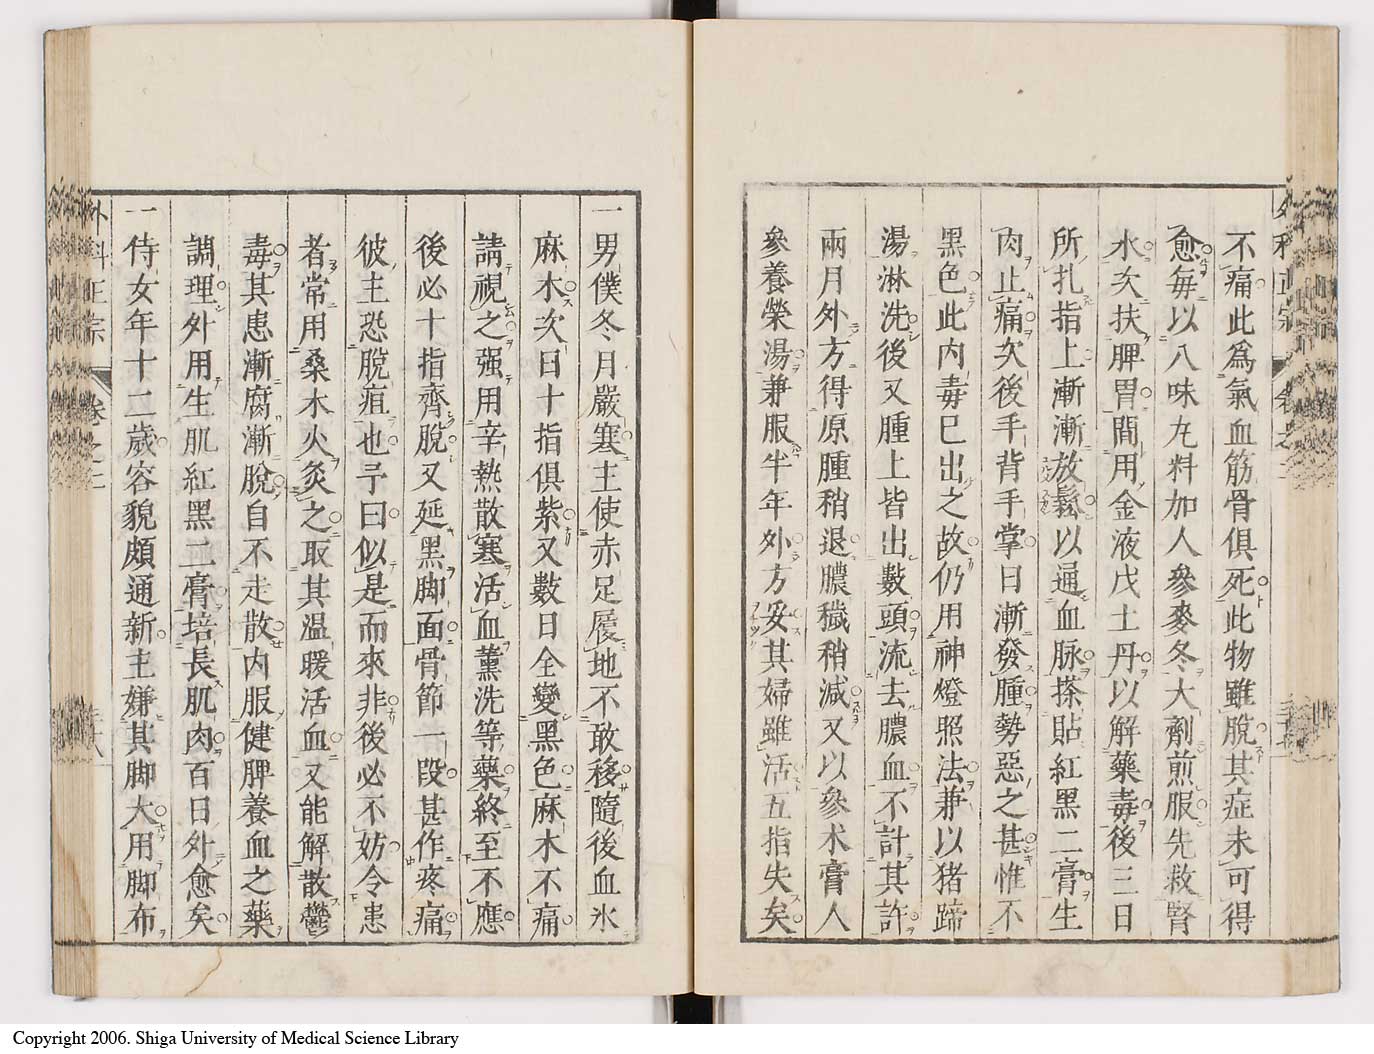 不痛此爲氣血筋骨俱死此物雖脫其症未可得
愈每以八味丸料加人參麥冬大劑煎服先救腎
水次扶脾胃間用金液戊土丹以解藥毒後三日
所扎指上漸漸放鬆以通血脉搽貼紅黑二膏生
肉止痛次後手背手掌日漸發腫勢惡之甚惟不
黑色此內毒已出之故仍用神燈照法兼以猪蹄
湯淋洗後又腫上皆出數頭流去膿血不計其許
兩月外方得原腫稍退膿穢稍減又以參术膏人
參養榮湯兼服半年外方妥其婦雖活五指失矣
一男僕冬月嚴寒主使赤足履地不敢移隨後血氷
麻木次日十指俱紫又數日全變黑色麻木不痛
請視之强用辛熱散寒活血薰洗等藥終至不應
後必十指齊脫又延黑脚面骨節一段甚作疼痛
彼主恐脫疽也予曰似是而來非後必不妨令患
者常用桑木火灸之取其温暖活血又能解散鬱
毒其患漸腐漸脫自不走散內服健脾養血之藥
調理外用生肌紅黑二膏培長肌肉百日外愈矣
一侍女年十二歲容貌頗通新主嫌其脚大用脚布
外科正宗
卷之二
Copyright 2006. Shiga University of Medical Science Library